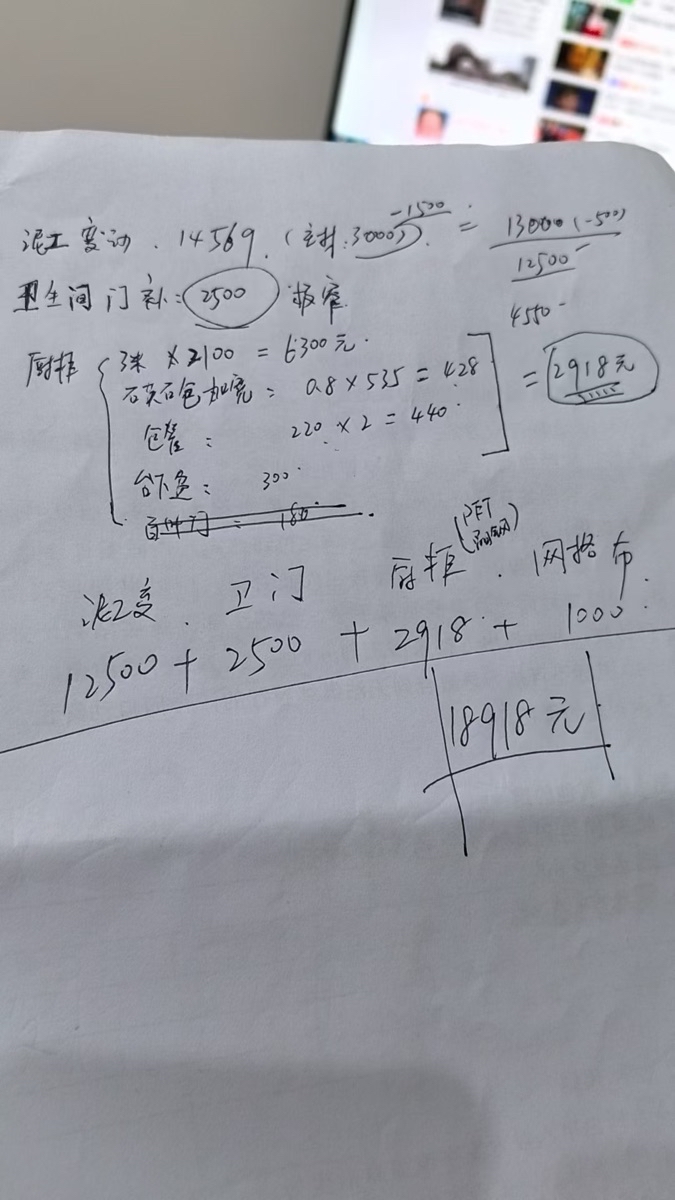 泥工变动. 14569. (主材.3000) -1500 = 13000 (-500)
12500
卫生间门补: 2500 极窄
4550
厨柜
3米 × 2100 = 6300元.
石英石包加宽: 0.8 × 535 = 428
= 2918元
包管: 220 × 2 = 440
台下盆: 300
百叶门 = 180.
泥工变. 卫门 厨柜 (PET . 网格布.
12500 + 2500 + 2918 + 1000.
18918元